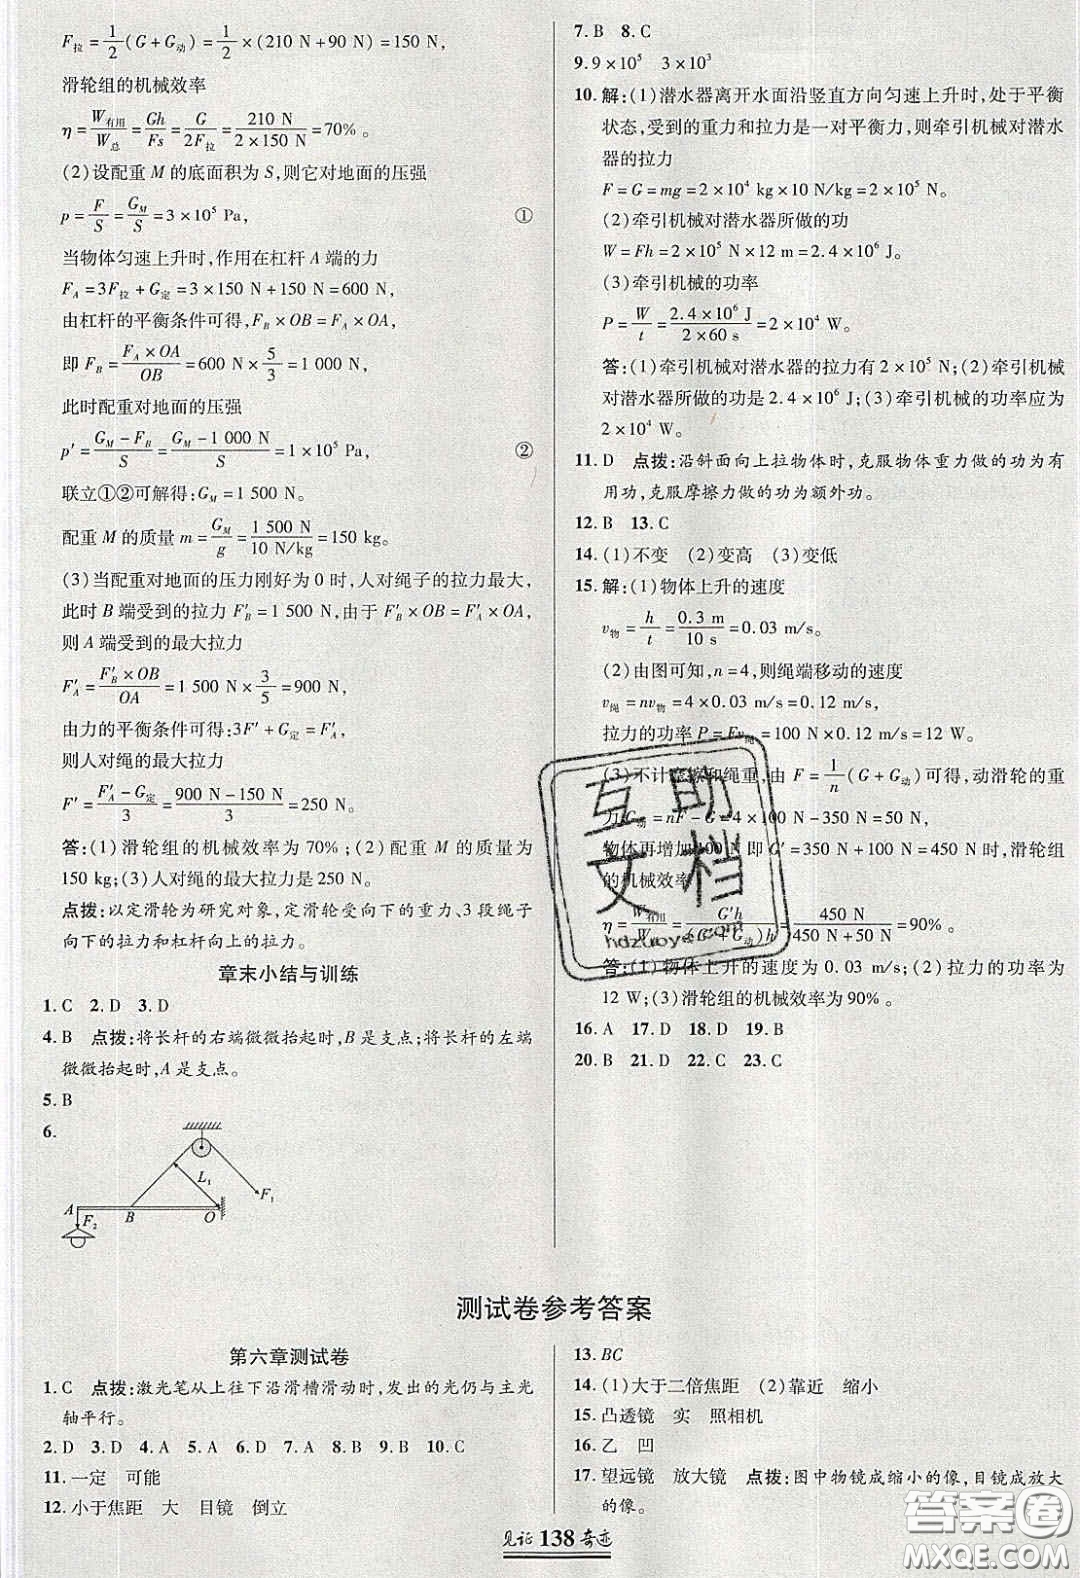 F拉=1/2(G+G动)=1/2×(210 N+90 N)=150 N,
滑轮组的机械效率
η=W有用/W总=Gh/Fs=G/2F拉=210 N/2×150 N=70%。
(2)设配重 M 的底面积为 S,则它对地面的压强
p=F/S=G_M/S=3×10⁵ Pa, ①
当物体匀速上升时,作用在杠杆 A 端的力
F_A=3F拉+G定=3×150 N+150 N=600 N,
由杠杆的平衡条件可得,F_B×OB=F_A×OA,
即 F_B=F_A×OA/OB=600 N×5/3=1 000 N,
此时配重对地面的压强
p′=G_M-F_B/S=G_M-1 000 N/S=1×10⁵ Pa, ②
联立①②可解得:G_M=1 500 N。
配重 M 的质量 m=G_M/g=1 500 N/10 N/kg=150 kg。
(3)当配重对地面的压力刚好为 0 时,人对绳子的拉力最大,
此时 B 端受到的拉力 F′_B=1 500 N,由于 F′_B×OB=F′_A×OA,
则 A 端受到的最大拉力
F′_A=F′_B×OB/OA=1 500 N×3/5=900 N,
由力的平衡条件可得:3F′+G定=F′_A,
则人对绳的最大拉力
F′=F′_A-G定/3=900 N-150 N/3=250 N。
答:(1)滑轮组的机械效率为 70%;(2)配重 M 的质量为
150 kg;(3)人对绳的最大拉力是 250 N。
点拨:以定滑轮为研究对象,定滑轮受向下的重力、3 段绳子
向下的拉力和杠杆向上的拉力。
章末小结与训练
1.C 2.D 3.D
4.B 点拨:将长杆的右端微微抬起时,B 是支点;将长杆的左端
微微抬起时,A 是支点。
5.B
6.
L₁
F₁
A
F₂
B
O
7.B 8.C
9.9×10⁵ 3×10³
10.解:(1)潜水器离开水面沿竖直方向匀速上升时,处于平衡
状态,受到的重力和拉力是一对平衡力,则牵引机械对潜水
器的拉力
F=G=mg=2×10⁴ kg×10 N/kg=2×10⁵ N。
(2)牵引机械对潜水器所做的功
W=Fh=2×10⁵ N×12 m=2.4×10⁶ J。
(3)牵引机械的功率
P=W/t=2.4×10⁶ J/2×60 s=2×10⁴ W。
答:(1)牵引机械对潜水器的拉力有 2×10⁵ N;(2)牵引机械
对潜水器所做的功是 2.4×10⁶ J;(3)牵引机械的功率应为
2×10⁴ W。
11.D 点拨:沿斜面向上拉物体时,克服物体重力做的功为有
用功,克服摩擦力做的功为额外功。
12.B 13.C
14.(1)不变 (2)变高 (3)变低
15.解:(1)物体上升的速度
v物=h/t=0.3 m/10 s=0.03 m/s。
(2)由图可知,n=4,则绳端移动的速度
v绳=nv物=4×0.03 m/s=0.12 m/s,
拉力的功率 P=Fv绳=100 N×0.12 m/s=12 W。
(3)不计摩擦和绳重,由 F=1/n(G+G动)可得,动滑轮的重
力 G动=nF-G=4×100 N-350 N=50 N,
物体再增加 100 N 即 G′=350 N+100 N=450 N 时,滑轮组
的机械效率
η=W有用/W总=G′h/(G′+G动)h=450 N/450 N+50 N=90%。
答:(1)物体上升的速度为 0.03 m/s;(2)拉力的功率为
12 W;(3)滑轮组的机械效率为 90%。
16.A 17.D 18.D 19.B
20.B 21.D 22.C 23.C
互助
文档
hdzuoye.com
测试卷参考答案
第六章测试卷
1.C 点拨:激光笔从上往下沿滑槽滑动时,发出的光仍与主光
轴平行。
2.D 3.D 4.A 5.A 6.D 7.A 8.B 9.B 10.C
11.一定 可能
12.小于焦距 大 目镜 倒立
13.BC
14.(1)大于二倍焦距 (2)靠近 缩小
15.凸透镜 实 照相机
16.乙 凹
17.望远镜 放大镜 点拨:图中物镜成缩小的像,目镜成放大
的像。
见证 138 奇迹
答案卷
MXQE.COM